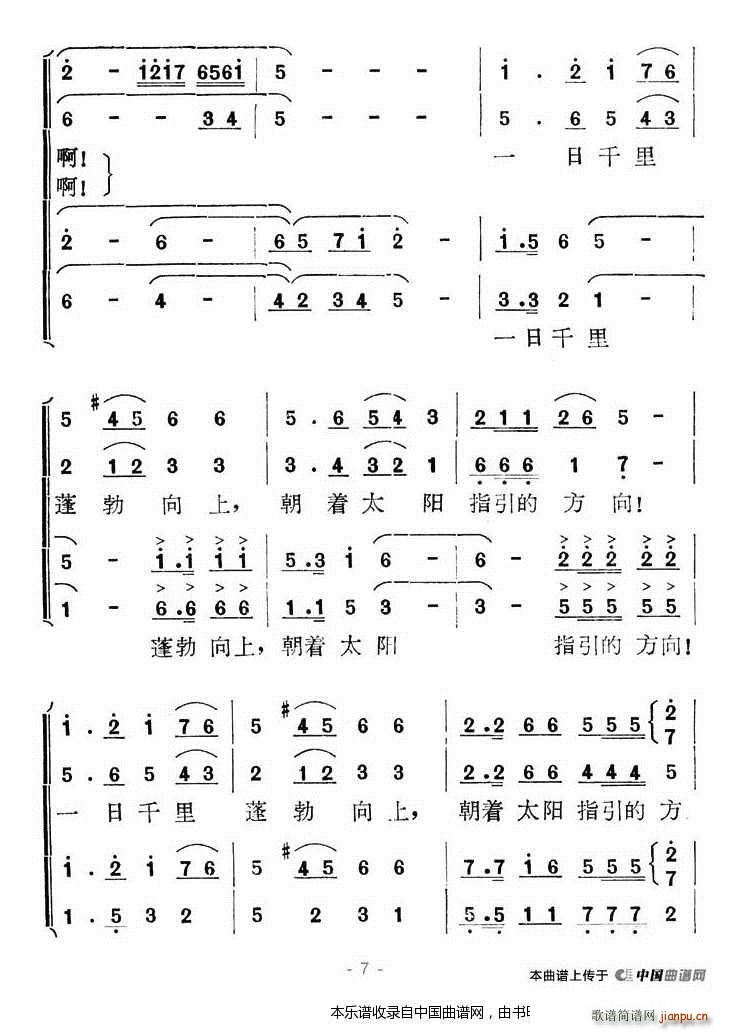 2 - 1217 6561 | 5 - - - | 1 . 2 1 76
6 - - 34 | 5 - - - | 5 . 6 5 43
啊! 一 日 千 里
啊!
2 - 6 - | 65 71 2 - | 1.5 6 5 -
6 - 4 - | 42 34 5 - | 3.3 2 1 -
一日千里
5 #45 6 6 | 5 . 6 54 3 | 211 26 5 -
2 12 3 3 | 3 . 4 32 1 | 666 1 7 -
蓬 勃 向 上, 朝 着 太 阳 指引的 方 向!
5 - 1.1 11 | 5.3 1 6 - | 6 - 222 22
1 - 6.6 66 | 1.1 5 3 - | 3 - 555 55
蓬勃 向上, 朝着 太 阳 指引的 方向!
1 . 2 1 76 | 5 #45 6 6 | 2.2 66 555 {2 7
5 . 6 5 43 | 2 12 3 3 | 2.2 66 444 5
一 日 千 里 蓬 勃 向 上, 朝着 太阳 指引的 方
1 . 2 1 76 | 5 #45 6 6 | 7.7 16 555 {2 7
1 . 5 3 2 | 5 2 3 1 | 5.5 11 777 2
- 7 -
本曲谱上传于 中国曲谱网
本乐谱收录自中国曲谱网，由书
歌谱简谱网
jianpu.cn